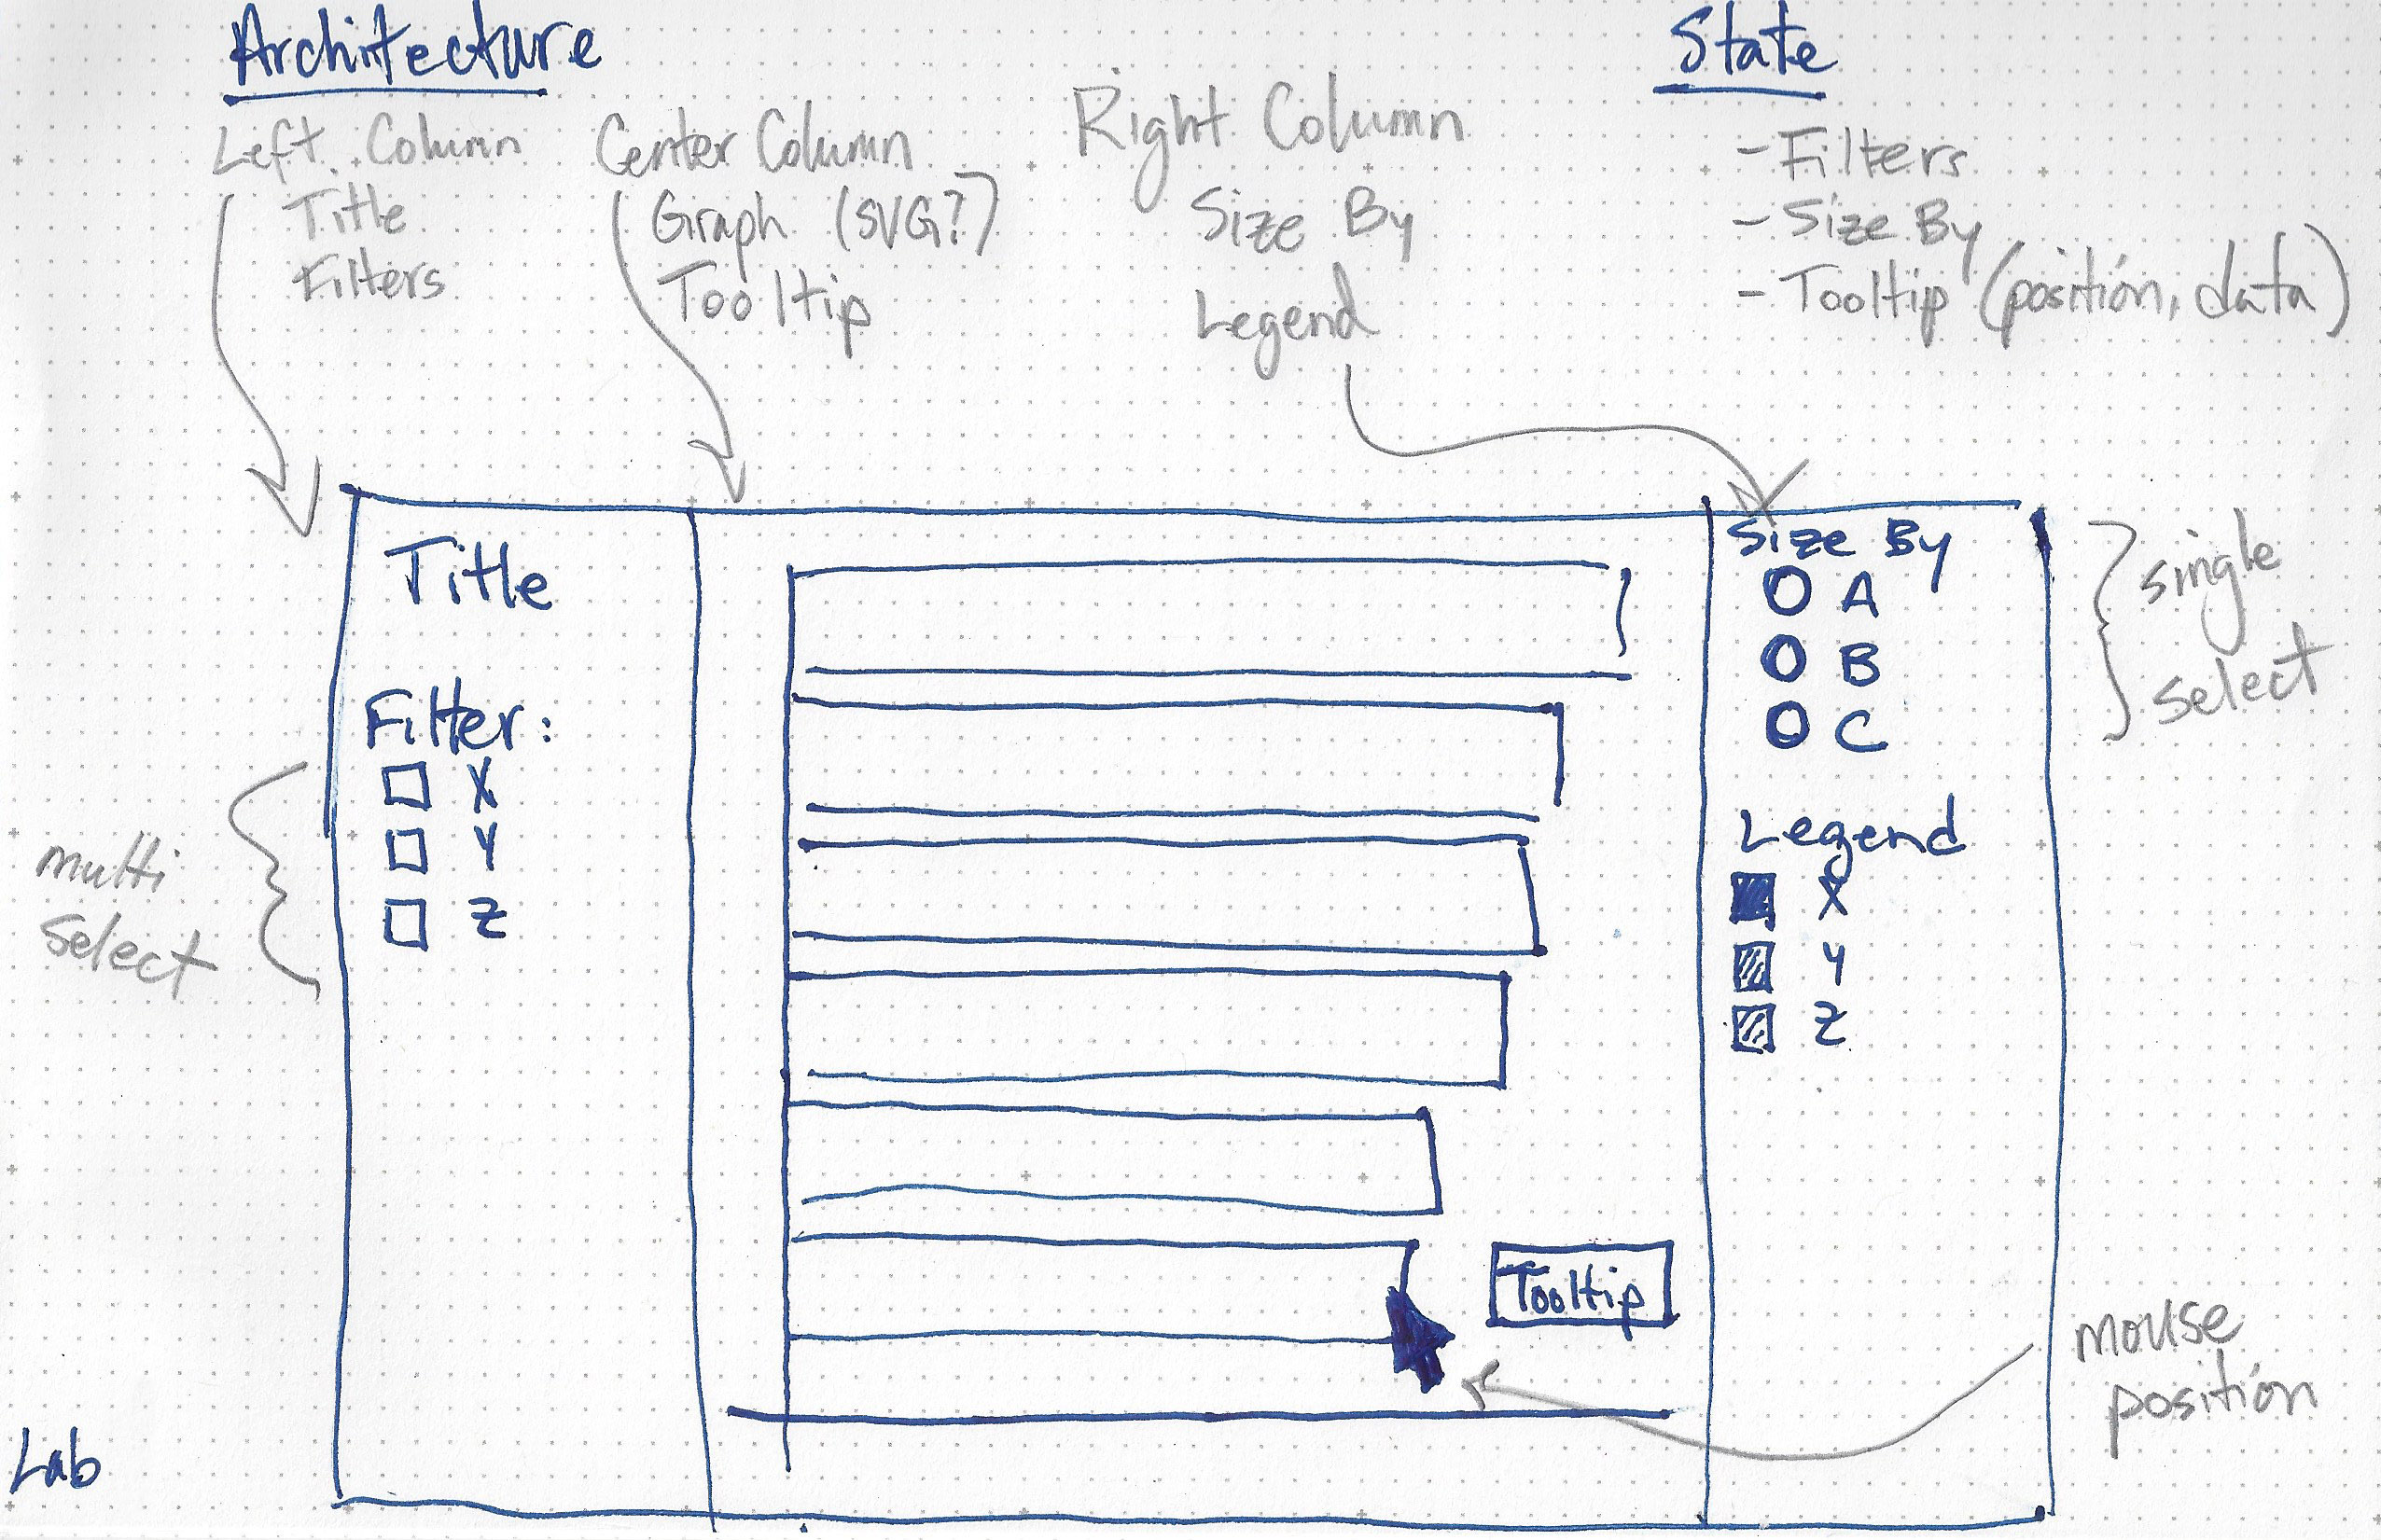 Architecture
Left Column
Title
Filters
Center Column
Graph (SVG?)
Tooltip
Right Column
Size By
Legend
State
- Filters
- Size By
- Tooltip (position, data)
Title
Filter:
X
Y
Z
multi
select
Tooltip
Size By
A
B
C
Legend
X
Y
Z
single
select
mouse
position
Lab